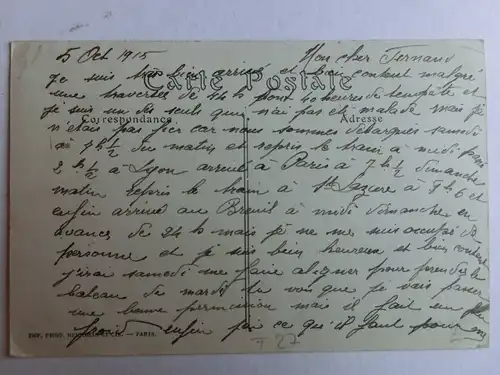 5 Oct 1915 Mon cher Fernand
Je suis très bien arrivé et bien content malgré
Carte Postale
une traversée de 74h dont 40 heures de tempête et
je suis un des seuls qui n'ai pas été malade mais je
Correspondance Adresse
n'étais pas fier car nous sommes débarqués samedi
à 7h ½ du matin et repris le train à midi pour
2h ½ à Lyon arrivé à Paris à 7h ½ dimanche
matin repris le train à St Lazare à 9h6 et
enfin arrivé au Breuil à midi dimanche en
avance de 24h mais je ne me suis occupé de
personne et je suis bien heureux et bien content
j'irai samedi me faire aligner pour prendre le
bateau de mardi tu vois que je vais passer
une bonne permission mais il fait un peu
froid enfin j'ai ce qu'il faut pour
IMP. PHOT. — PARIS.
F 27